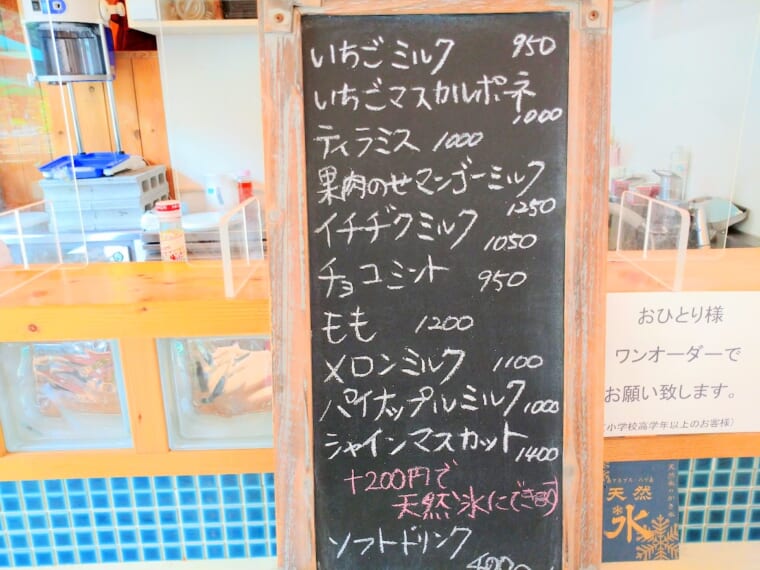 いちごミルク 950
いちごマスカルポーネ
1000
ティラミス 1000
果肉のせマンゴーミルク
1250
イチヂクミルク 1050
チョコミント 950
もも 1200
メロンミルク 1100
パイナップルミルク 1000
シャインマスカット 1400
+200円で
天然氷にできます
ソフトドリンク
おひとり様
ワンオーダーで
お願い致します。
(小学校高学年以上のお客様)
天然
氷